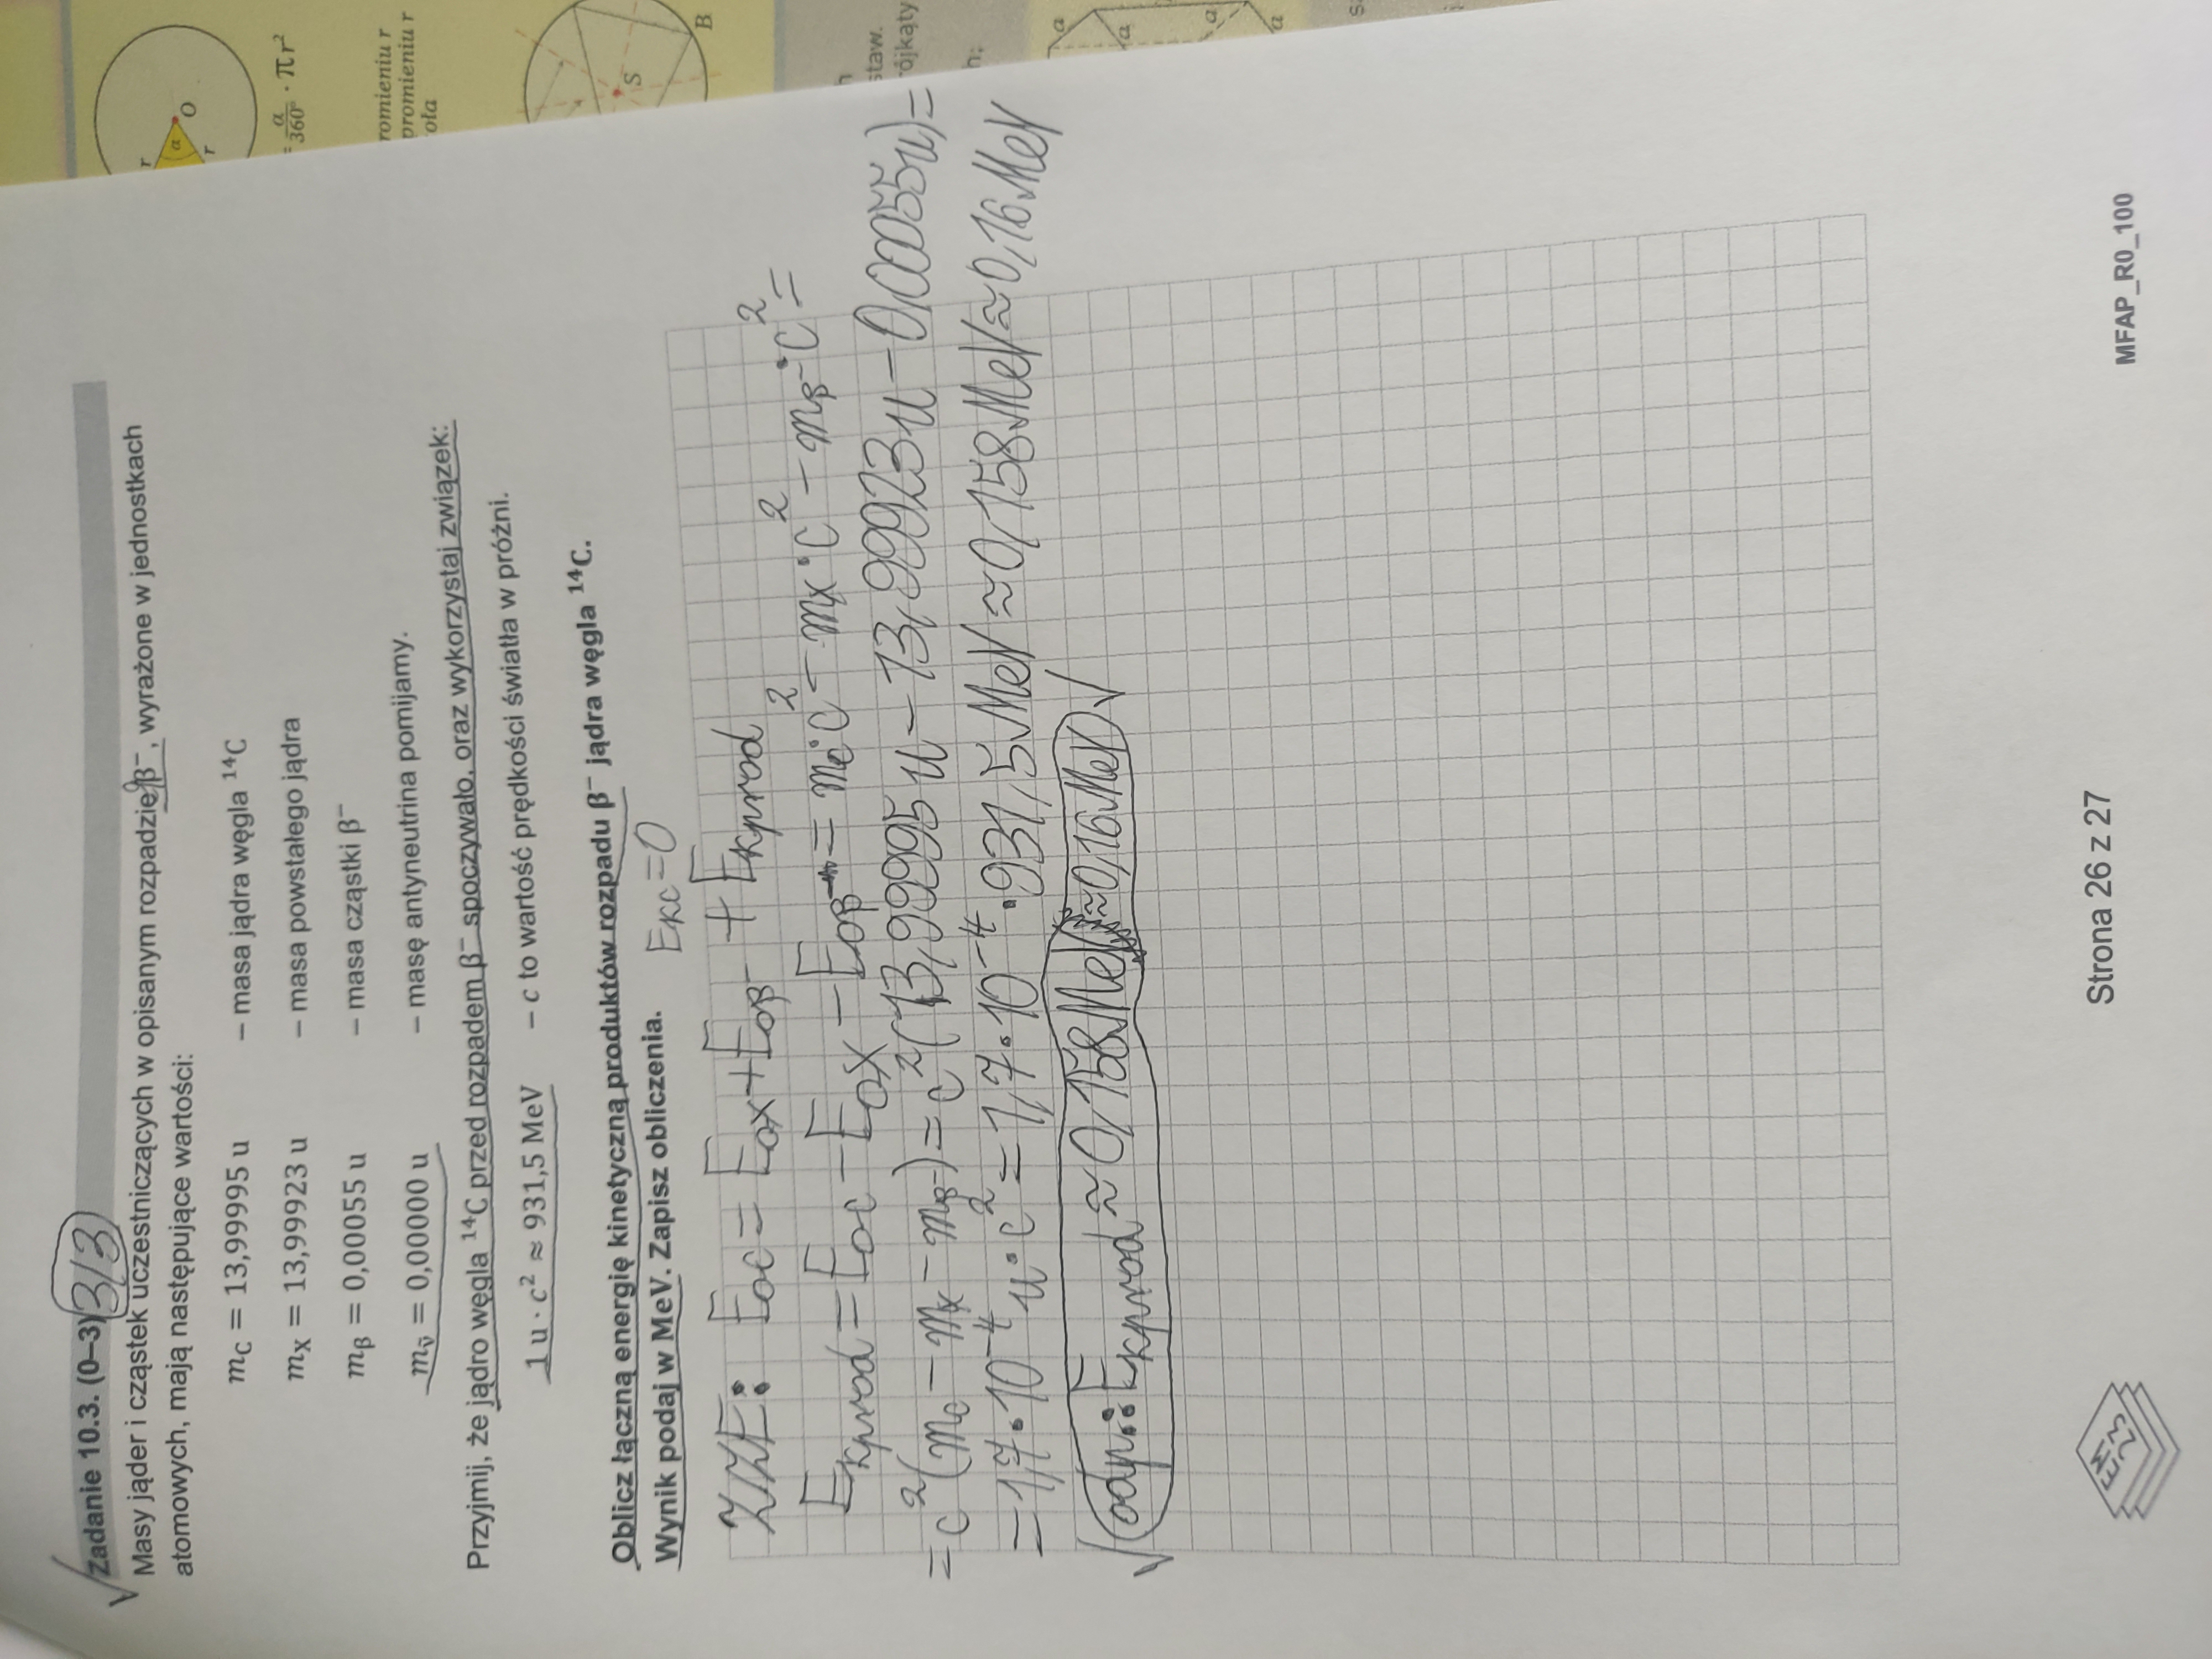 √ Zadanie 10.3. (0–3) 3/3
Masy jąder i cząstek uczestniczących w opisanym rozpadzie β⁻, wyrażone w jednostkach
atomowych, mają następujące wartości:
m_C = 13,99995 u – masa jądra węgla ¹⁴C
m_X = 13,99923 u – masa powstałego jądra
m_β = 0,00055 u – masa cząstki β⁻
m_ν̃ = 0,00000 u – masę antyneutrina pomijamy.
Przyjmij, że jądro węgla ¹⁴C przed rozpadem β⁻ spoczywało, oraz wykorzystaj związek:
1 u · c² ≈ 931,5 MeV – c to wartość prędkości światła w próżni.
Oblicz łączną energię kinetyczną produktów rozpadu β⁻ jądra węgla ¹⁴C.
Wynik podaj w MeV. Zapisz obliczenia. Ekc=0
ZZE: Eoc = Eox + Eoβ⁻ + Ekprod
Ekprod = Eoc − Eox − Eoβ⁻ = mc·c² − mx·c² − mβ⁻·c² =
= c²(mc − mx − mβ⁻) = c²(13,99995 u − 13,99923 u − 0,00055 u) =
= 1,7·10⁻⁴ u·c² = 1,7·10⁻⁴·931,5 MeV ≈ 0,158 MeV ≈ 0,16 MeV
√ odp.: Ekprod ≈ 0,158 MeV ≈ 0,16 MeV √
Strona 26 z 27
MFAP_R0_100
EM
23
r
α
O
r
= α/360° · πr²
romieniu r
promieniu r
oła
S
B
staw.
ójkąty
h:
a
a
a
a